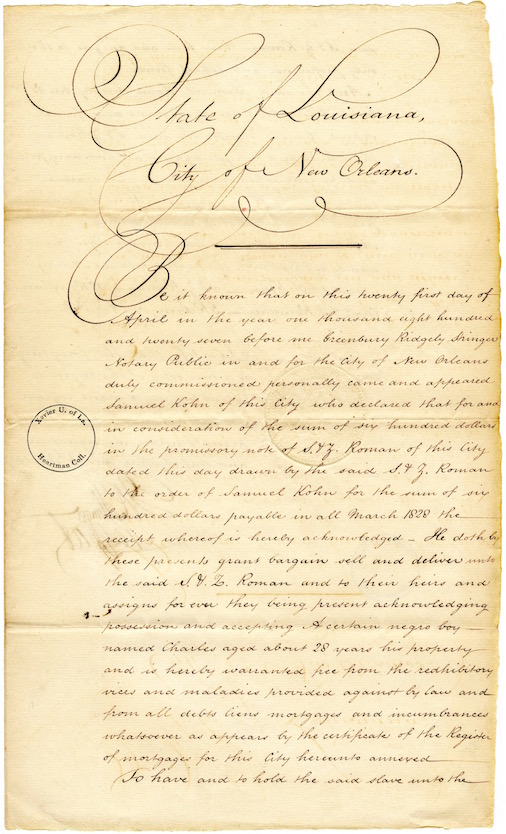 State of Louisiana,
City of New Orleans.
Be it known that on this twenty first day of
April in the year one thousand eight hundred
and twenty seven before me Greenbury Ridgely Stringer
Notary Public in and for the City of New Orleans
duly commissioned personally came and appeared
Samuel Kohn of this City who declared that for and
in consideration of the sum of six hundred dollars
in the promissory note of S. & Z. Roman of this City
dated this day drawn by the said S. & Z. Roman
to the order of Samuel Kohn for the sum of six
hundred dollars payable in all March 1828 the
receipt whereof is hereby acknowledged – He doth by
these presents grant bargain sell and deliver unto
the said S. & Z. Roman and to their heirs and
assigns for ever they being present acknowledging
possession and accepting A certain negro boy
named Charles aged about 28 years his property
and is hereby warranted free from the redhibitory
vices and maladies provided against by law and
from all debts liens mortgages and incumbrances
whatsoever as appears by the certificate of the Register
of mortgages for this City hereunto annexed
To have and to hold the said slave unto the
Xavier U. of La.
Heartman Coll.